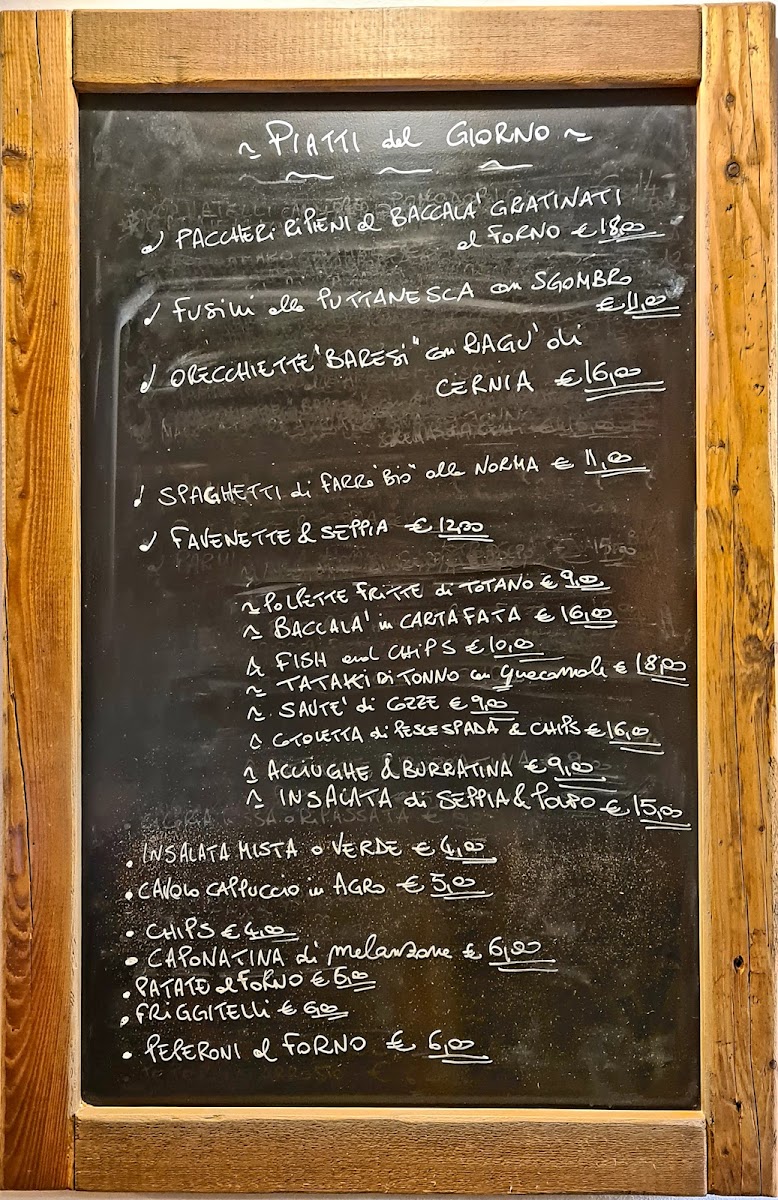 ~ PIATTI del GIORNO ~
PACCHERI RIPIENI al BACCALA' GRATINATI
al FORNO € 18,00
FUSILLI alla PUTTANESCA con SGOMBRO
€ 11,00
ORECCHIETTE "BARESI" con RAGU' di
CERNIA € 16,00
SPAGHETTI di FARRO "BIO" alla NORMA € 11,00
FAVENETTE & SEPPIA € 12,00
~ POLPETTE FRITTE di TOTANO € 9,00
~ BACCALA' in CARTAFATA € 16,00
~ FISH and CHIPS € 10,00
~ TATAKI DI TONNO con guacamole € 18,00
~ SAUTE' di COZZE € 9,00
~ COTOLETTA di PESCE SPADA & CHIPS € 16,00
~ ACCIUGHE & BURRATINA € 9,00
~ INSALATA di SEPPIA & POLPO € 15,00
• INSALATA MISTA o VERDE € 4,00
• CAVOLO CAPPUCCIO in AGRO € 5,00
• CHIPS € 4,00
• CAPONATINA di melanzane € 6,00
• PATATE al FORNO € 6,00
• FRIGGITELLI € 6,00
• PEPERONI al FORNO € 6,00